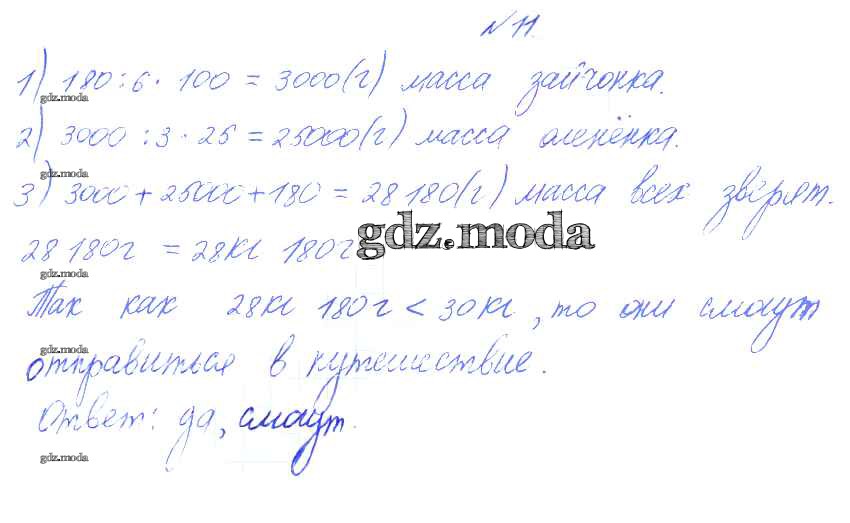 № 11.
1) 180 : 6 · 100 = 3000 (г) масса зайчонка.
gdz.moda
2) 3000 : 3 · 25 = 25000 (г) масса оленёнка.
gdz.moda
3) 3000 + 25000 + 180 = 28 180 (г) масса всех зверят.
28 180 г = 28 кг 180 г
gdz.moda
gdz.moda
Так как 28 кг 180 г < 30 кг, то они смогут
gdz.moda
отправиться в путешествие.
Ответ: да, смогут.
gdz.moda